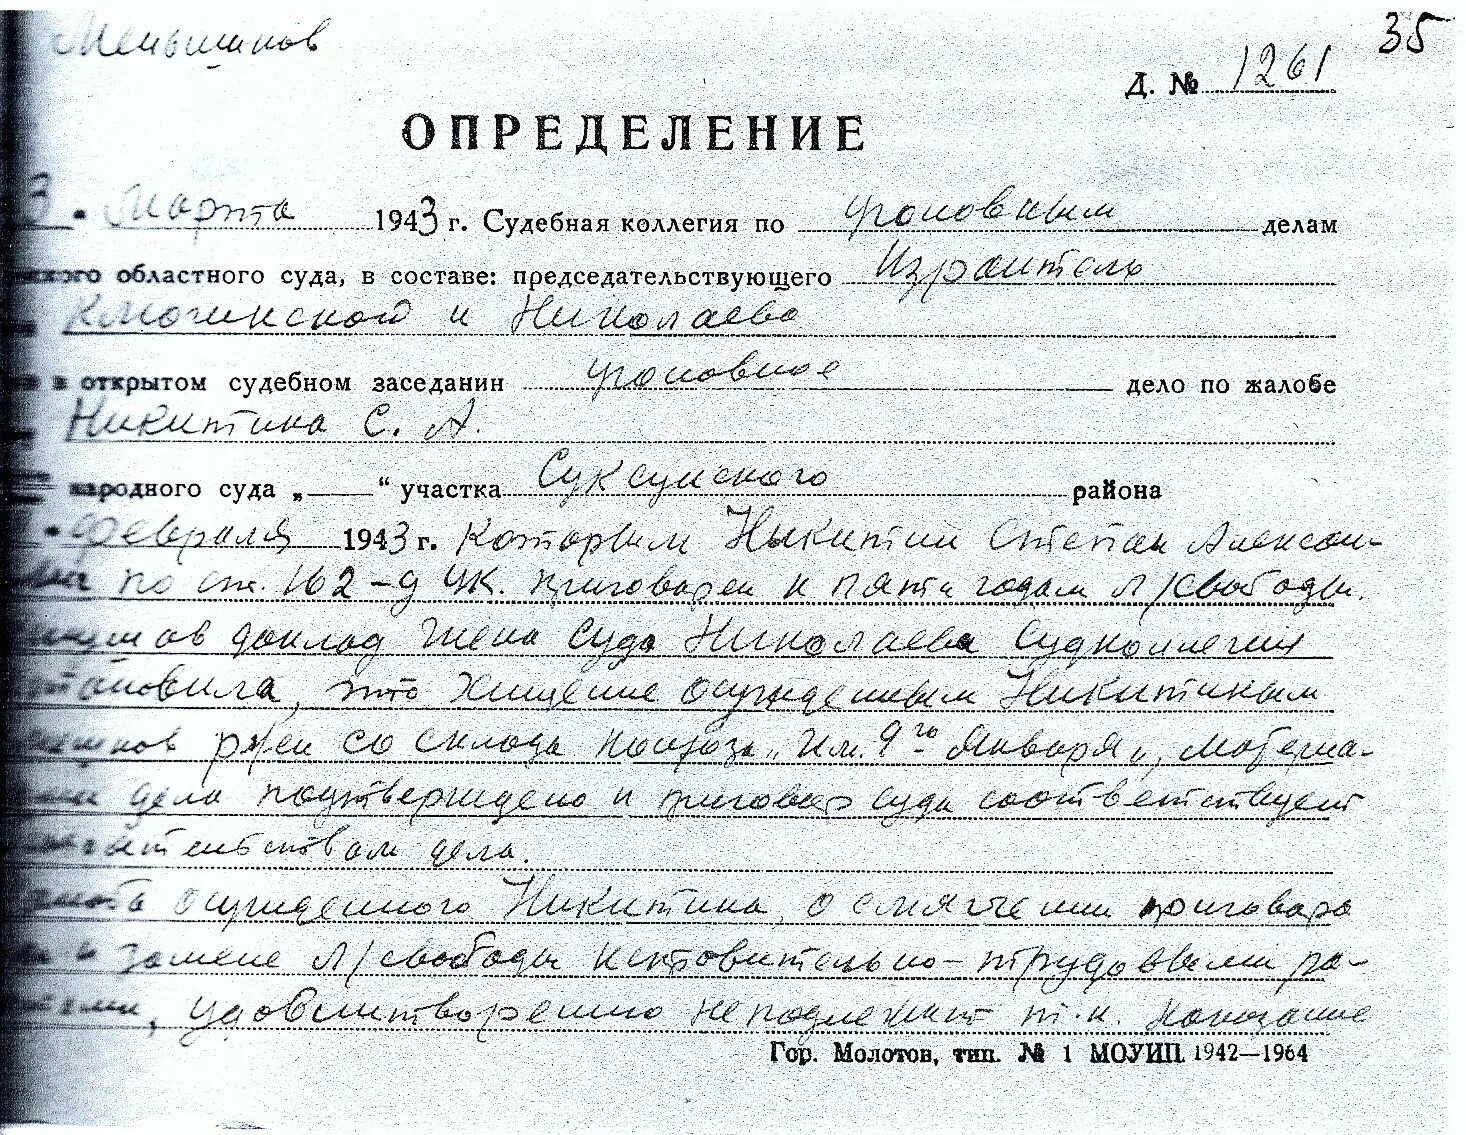 Меньшиков
35
Д. № 1261
ОПРЕДЕЛЕНИЕ
3. Марта 1943 г. Судебная коллегия по уголовным делам
ского областного суда, в составе: председательствующего Израитель
Ключинской и Николаева
в открытом судебном заседании уголовное дело по жалобе
Никитина С. А.
народного суда „ “ участка Суксунского района
Февраля 1943 г. Которым Никитин Степан Алексан-
по ст. 162-д УК. приговорен к пяти годам л/свободы.
доклад Члена Суда Николаева Судколлегия
становила, что хищение осужденным Никитиным
ржи со склада колхоза „Им. 9го Января", материа-
дела подтверждено и приговор суда соответствует
дела.
осужденного Никитина, о смягчении приговора
и замене л/свободы исправительно-трудовыми ра-
, удовлетворению не подлежит т.к. наказание
Гор. Молотов, тип. № 1 МОУИП. 1942—1964